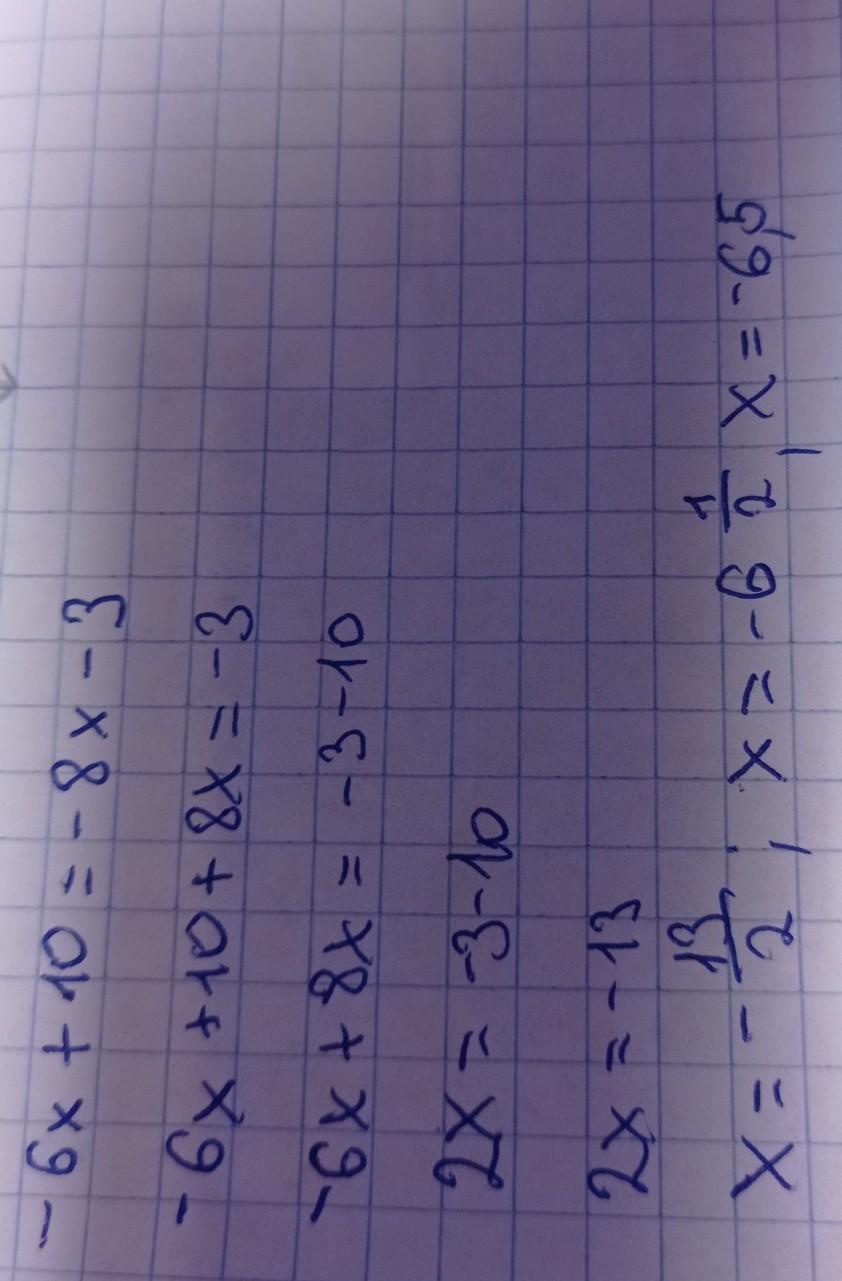 -6x + 10 = -8x - 3
-6x + 10 + 8x = -3
-6x + 8x = -3 - 10
2x = -3 - 10
2x = -13
x = -13/2, x = -6 1/2, x = -6,5